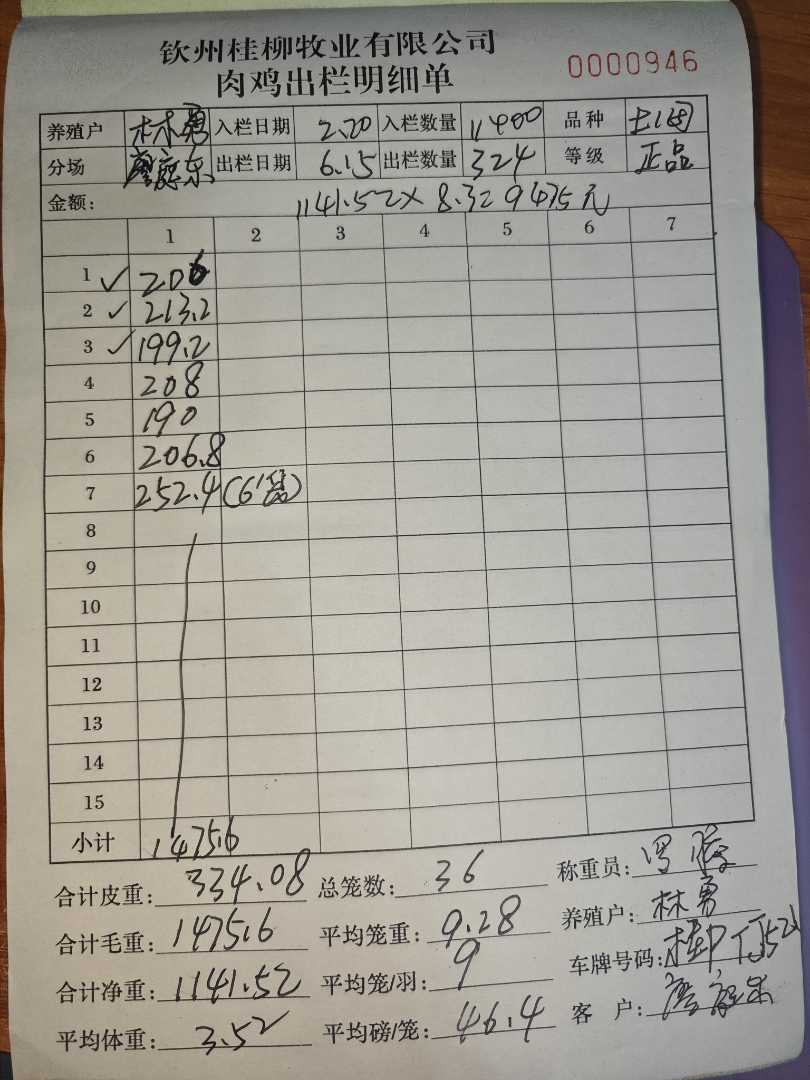 钦州桂柳牧业有限公司
肉鸡出栏明细单 0000946
养殖户 林勇 入栏日期 2.20 入栏数量 11400 品种
分场 入栏日期 6.15 出栏数量 324 等级 正品
金额: 1141.52×8.32 9475元
1 2 3 4 5 6 7
1 ✓ 206
2 ✓ 213.2
3 ✓ 199.2
4 208
5 190
6 206.8
7 252.4 (6
8
9
10
11
12
13
14
15
小计 1475.6
合计皮重: 334.08 总笼数: 36 称重员:
合计毛重: 1475.6 平均笼重: 9.28 养殖户: 林勇
合计净重: 1141.52 平均笼/羽: 9 车牌号码:
平均体重: 3.52 平均磅/笼: 46.4 客户: